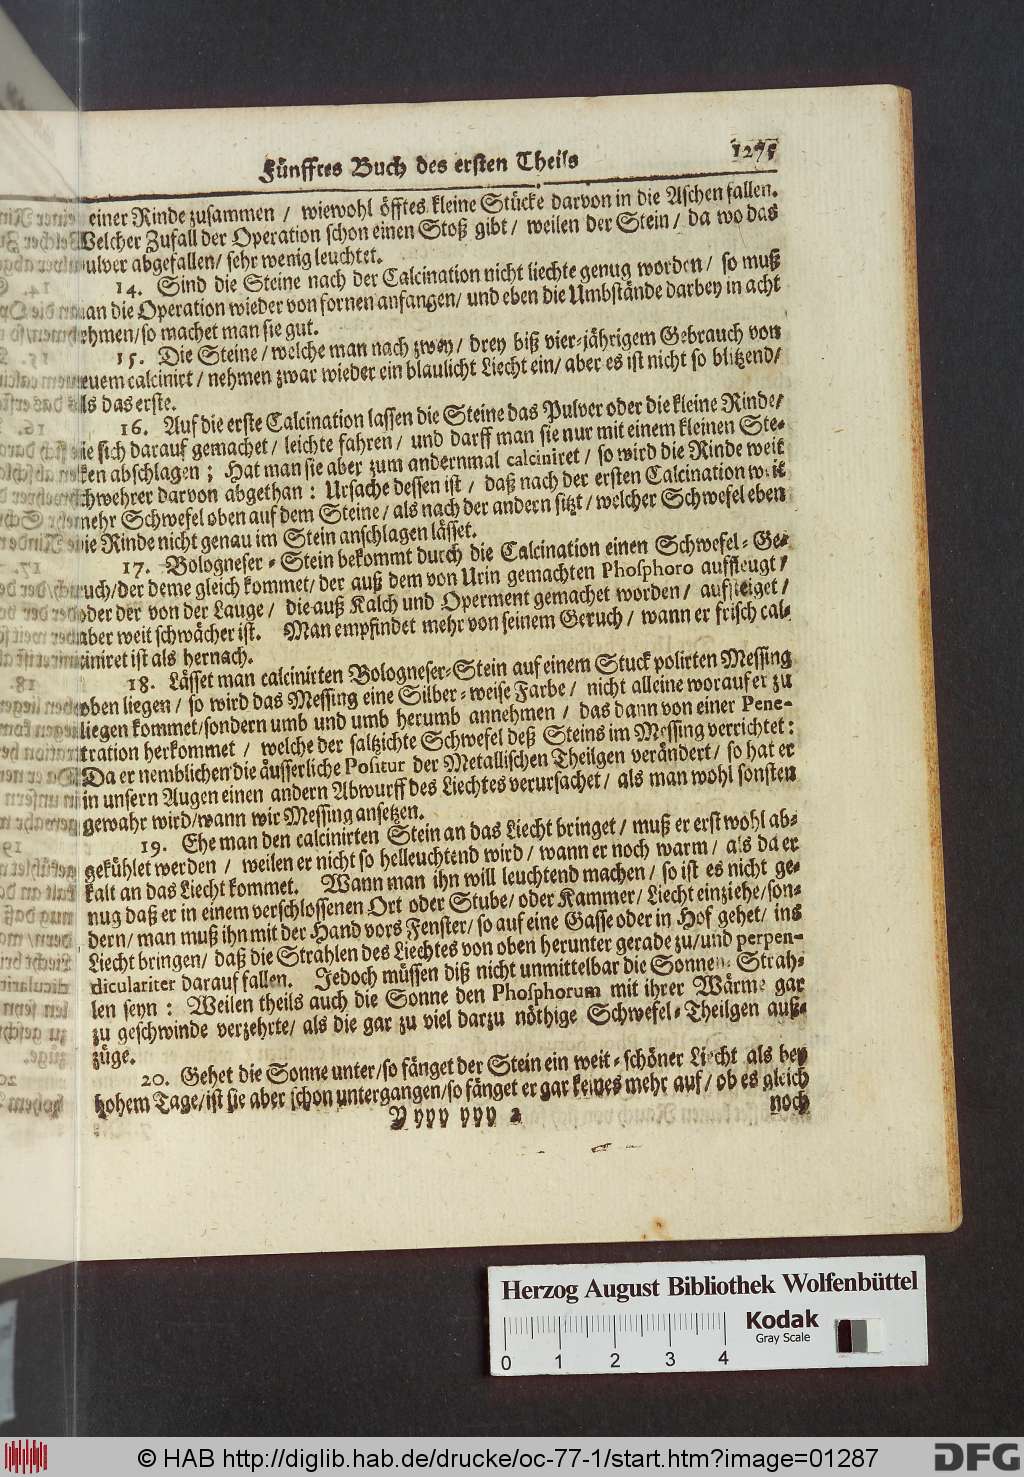 Fünfftes Buch des ersten Theils 1275
einer Rinde zusammen / wiewohl öfftes kleine Stücke darvon in die Aschen fallen.
Welcher Zufall der Operation schon einen Stoß gibt / weilen der Stein / da wo das
ulver abgefallen / sehr wenig leuchtet.
14. Sind die Steine nach der Calcination nicht liechte genug worden / so muß
an die Operation wieder von fornen anfangen / und eben die Umbstände darbey in acht
ehmen / so machet man sie gut.
15. Die Steine / welche man nach zwey / drey biß vier-jährigem Gebrauch von
euem calcinirt / nehmen zwar wieder ein blaulicht Liecht ein / aber es ist nicht so blitzend /
ls das erste.
16. Auf die erste Calcination lassen die Steine das Pulver oder die kleine Rinde /
ie sich darauf gemachet / leichte fahren / und darff man sie nur mit einem kleinen Ste-
ken abschlagen ; Hat man sie aber zum andernmal calciniret / so wird die Rinde weit
chwehrer darvon abgethan : Ursache dessen ist / daß nach der ersten Calcination weit
mehr Schwefel oben auf dem Steine / als nach der andern sitzt / welcher Schwefel eben
ie Rinde nicht genau im Stein anschlagen lässet.
17. Bologneser-Stein bekommt durch die Calcination einen Schwefel-Ge-
uch / der deme gleich kommet / der auß dem von Urin gemachten Phosphoro aufsteugt /
oder der von der Lauge / die auß Kalch und Operment gemachet worden / aufsteiget /
aber weit schwächer ist. Man empfindet mehr von seinem Geruch / wann er frisch cal-
ciniret ist als hernach.
18. Lässet man calcinirten Bologneser-Stein auf einem Stuck polirten Messing
oben liegen / so wird das Messing eine Silber-weise Farbe / nicht alleine worauf er zu
liegen kommet / sondern umb und umb herumb annehmen / das dann von einer Pene-
tration herkommet / welche der saltzichte Schwefel deß Steins im Messing verrichtet :
Da er nemblichen die äusserliche Politur der Metallischen Theilgen verändert / so hat er
in unsern Augen einen andern Abwurff des Liechtes verursachet / als man wohl sonsten
gewahr wird / wann wir Messing ansetzen.
19. Ehe man den calcinirten Stein an das Liecht bringet / muß er erst wohl ab-
gekühlet werden / weilen er nicht so helleuchtend wird / wann er noch warm / als da er
kalt an das Liecht kommet. Wann man ihn will leuchtend machen / so ist es nicht ge-
nug daß er in einem verschlossenen Ort oder Stube / oder Kammer / Liecht einziehe / son-
dern / man muß ihn mit der Hand vors Fenster / so auf eine Gasse oder in Hof gehet / ins
Liecht bringen / daß die Strahlen des Liechtes von oben herunter gerade zu / und perpen-
diculariter darauf fallen. Jedoch müssen diß nicht unmittelbar die Sonnen-Strah-
len seyn : Weilen theils auch die Sonne den Phosphorum mit ihrer Wärme gar
zu geschwinde verzehrte / als die gar zu viel darzu nöthige Schwefel-Theilgen auß-
züge.
20. Gehet die Sonne unter / so fänget der Stein ein weit-schöner Liecht als bey
hohem Tage / ist sie aber schon untergangen / so fänget er gar keines mehr auf / ob es gleich
Y yyy yyy 2 noch
Herzog August Bibliothek Wolfenbüttel
Kodak
Gray Scale
0 1 2 3 4
© HAB http://diglib.hab.de/drucke/oc-77-1/start.htm?image=01287
DFG